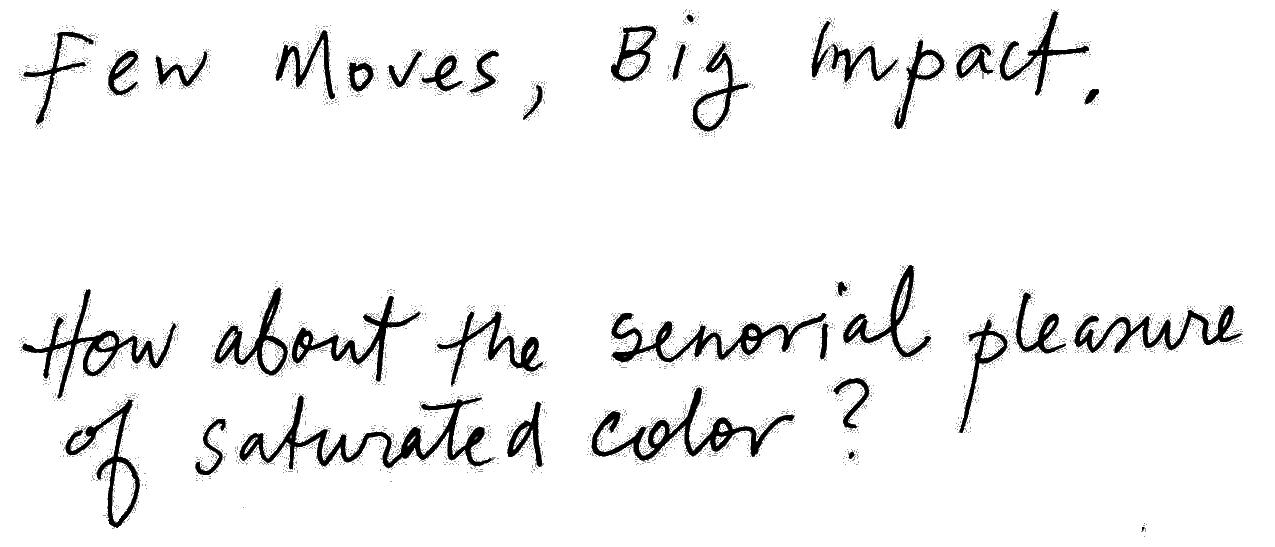 Few Moves, Big Impact.
How about the senorial pleasure
of saturated color?